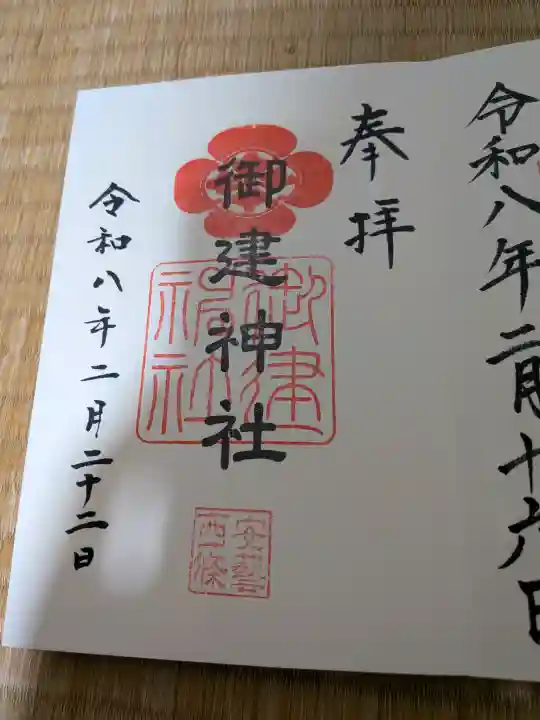 令和八年二月十六日
奉拝
御建神社
御建神社
安藝
西條
令和八年二月二十二日